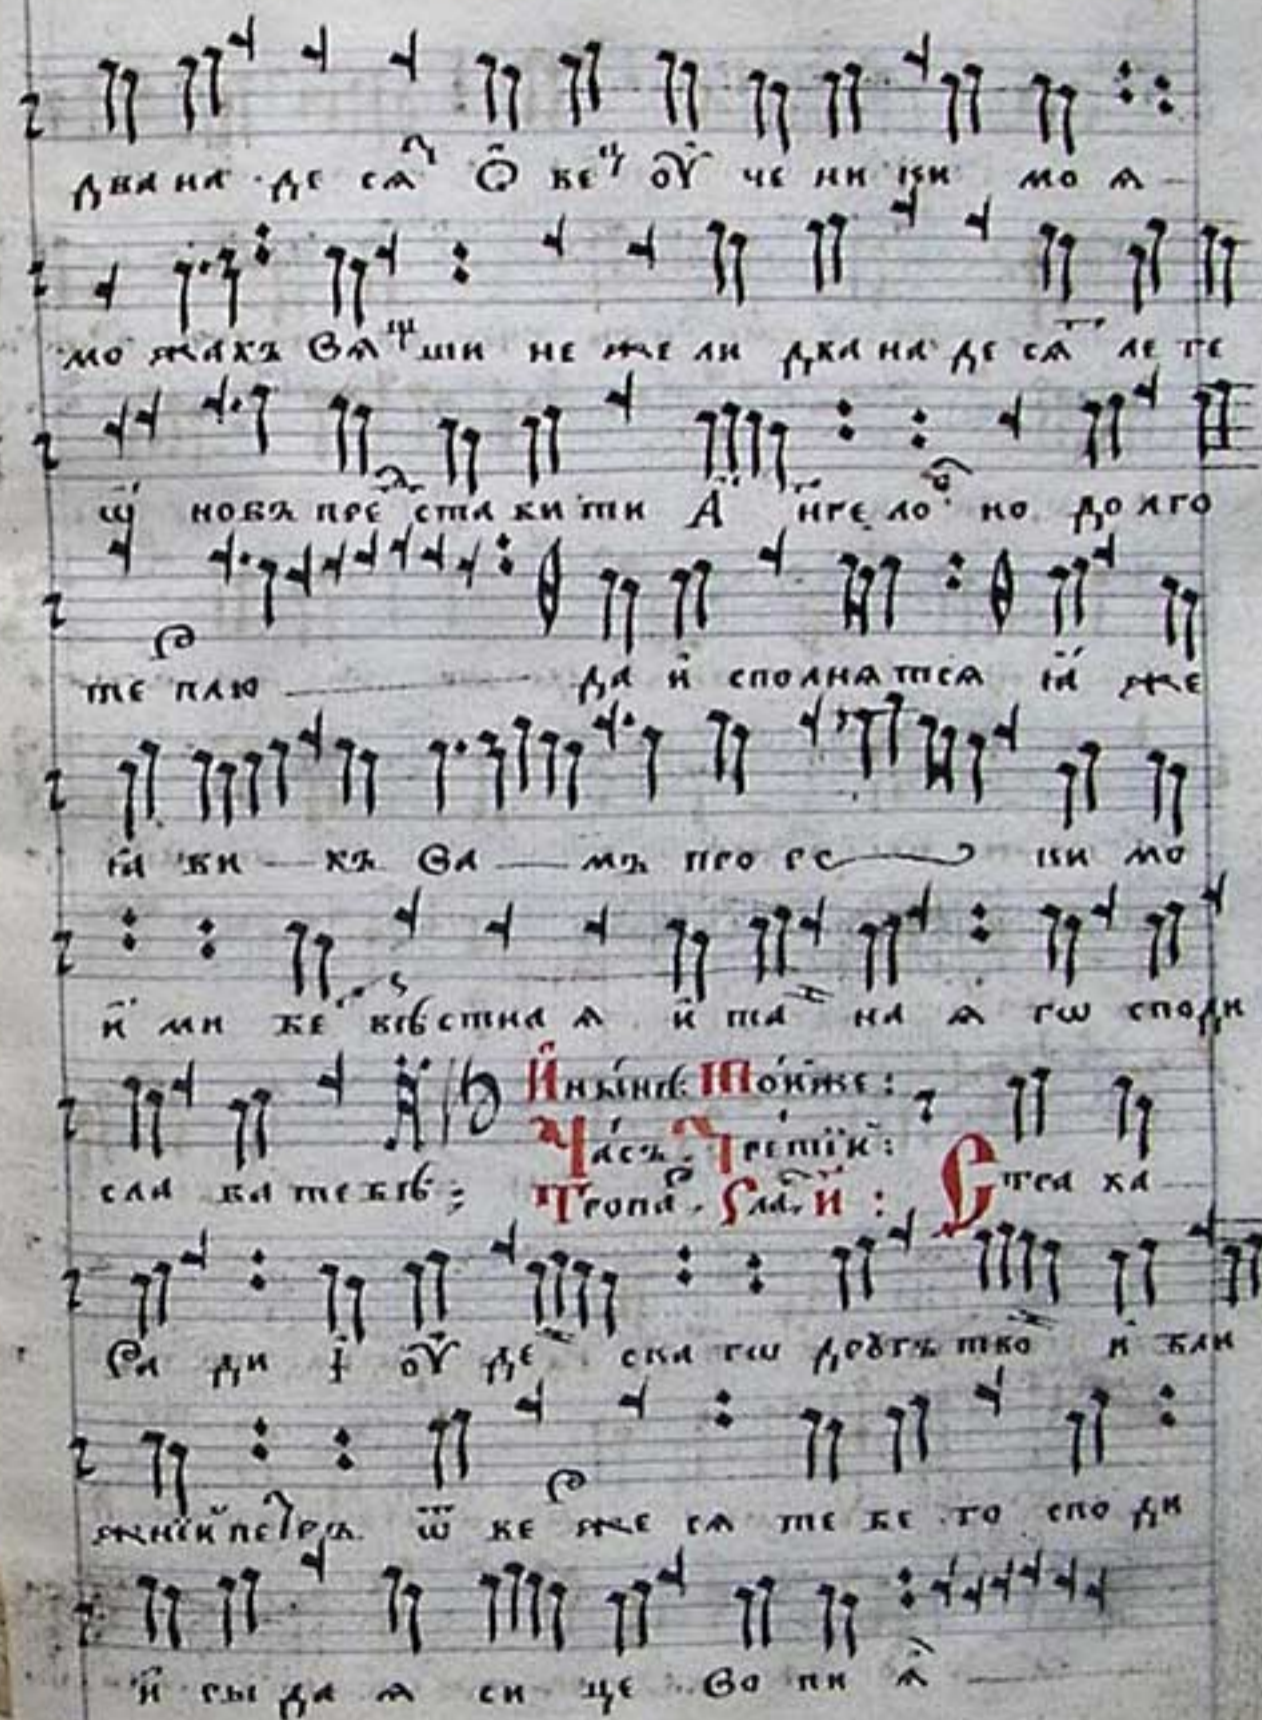 два на де сѧт Ѻ вец оу че ни ки мо ѧ
мо жахъ вѧщ ши не же ли два на де сѧт ле ге
ѡ новъ пред ста ви ти А нге лов но долго
те плю да и сполнѧтсѧ ꙗ же
ꙗ ви хъ ва мъ про ро ки мо
и ми бе вѣстна ѧ и тан на ѧ гѡ споди
сла ва те бѣ :
И нынѣ Тои же :
Часъ Третїй :
Тропа. Сла. И : Стра ха
Ра ди І оу дей ска гѡ другъ твой и бли
жнїй петръ ѿ ве рже сѧ те бе го спо ди
и ры да ѧ си це во пи ѧ